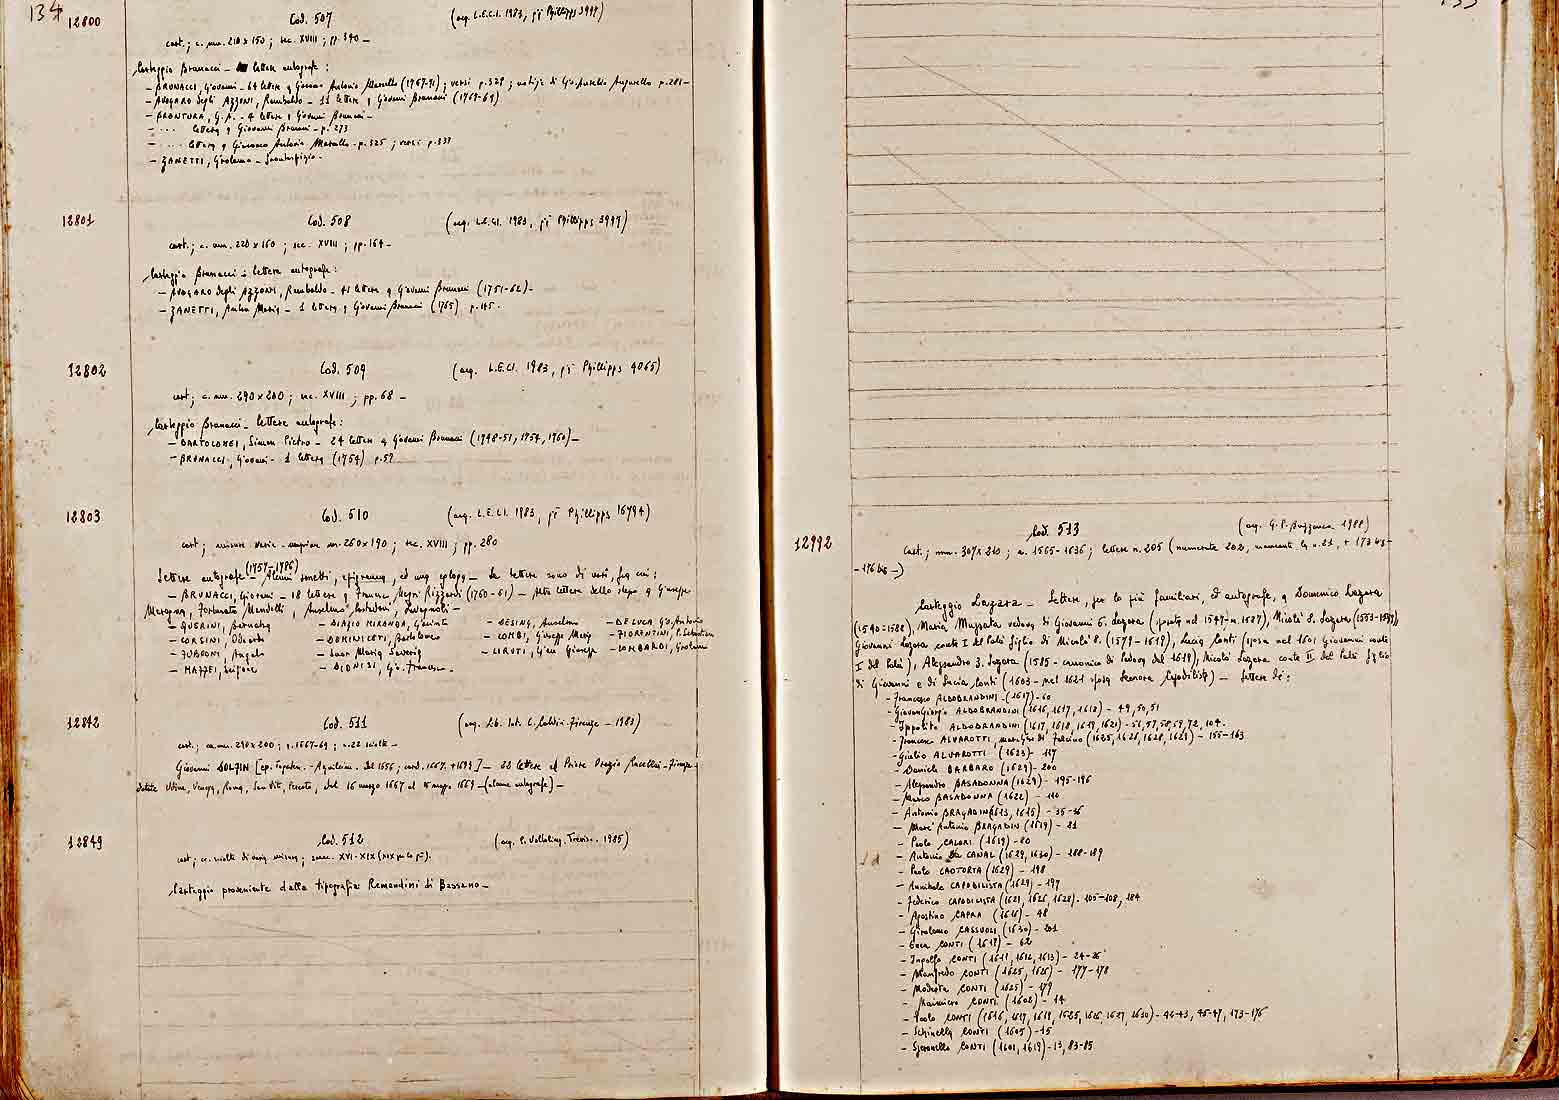 134
12800 Cod. 507 (acq. L.E.C.I. 1983, già Phillipps 3997)
cart.; c. mm. 210 x 150; sec. XVIII; pp. 390 —
Carteggio Brunacci — lettere autografe:
— BRUNACCI, Giovanni — 64 lettere a Giacomo Antonio Marullo (1767-71); versi p. 329; notizie di Gio. Aurelio Augurello p. 281 —
— AVOGARO degli AZZONI, Rambaldo — 11 lettere a Giovanni Brunacci
— G.A. — 4 lettere a Giovanni Brunacci —
— ... lettera a Giovanni Brunacci — p. 273
— ... lettera a Giacomo Antonio Marullo — p. 325; versi p. 337
— ZANETTI, Girolamo — frontespizio —
12801 Cod. 508 (acq. L.E.CI. 1983, già Phillipps 3997)
cart.; c. mm. 220 x 160; sec. XVIII; pp. 164 —
Carteggio Brunacci — lettere autografe:
— AVOGARO degli AZZONI, Rambaldo — 41 lettere a Giovanni Brunacci (1751-62) —
— ZANETTI, Anton Maria — 1 lettera a Giovanni Brunacci (1765) p. 145 —
12802 Cod. 509 (acq. L.E.CI. 1983, già Phillipps 4065)
cart.; c. mm. 290 x 200; sec. XVIII; pp. 68 —
Carteggio Brunacci — lettere autografe:
— BARTOLOMEI, Simon Pietro — 24 lettere a Giovanni Brunacci
— BRUNACCI, Giovanni — 1 lettera (1754) p. 57
12803 Cod. 510 (acq. L.E.CI. 1983, già Phillipps 16794)
cart.; misure varie — massime mm. 260 x 190; sec. XVIII; pp. 280
Lettere autografe (1757-1786) — Alcuni sonetti, epigramma, ed una egloga — Le lettere sono di vari, fra cui:
— BRUNACCI, Giovanni — 18 lettere a Francesco Negri Rizzardi (1760-61) — Altre lettere dello stesso a Giuseppe
Fortunato Mandelli, Anselmo Costadoni,
— QUERINI, Bernardo — BIAGIO MIRANDA, Giacinto — DESING, Anselmo — DE LUCA, Gio. Antonio
— CORSINI, Odoardo — DOMINICETI, Bartolomeo — COMBI, Giuseppe Maria — FIORENTINI, P. Sebastiano
— ZUBONI, Angelo — Juan Maria Saverio — LIRUTI, Gian Giuseppe — LOMBARDI, Girolamo
— MAFFEI, Scipione — DIONISI, Gio. Francesco —
12842 Cod. 511 (acq. Lib. Ant. C. Coldin — Firenze — 1983)
cart.; ca. mm. 290 x 200; a. 1667-69; c. 22 sciolte —
Giovanni DOLFIN 22 lettere al Priore Orazio Rucellai — Firenze —
datate Udine, Venezia, Roma, San Vito, dal 16 marzo 1667 al 1669 — (alcune autografe) —
12849 Cod. 512 (acq. Treviso 1985)
cart.; cc. sciolte di varia misura; secc. XVI-XIX
Carteggio proveniente dalla tipografia Remondini di Bassano —
12992 Cod. 513 (acq. G.P. Buzzanca 1988)
Cart.; mm. 307 x 210; a. 1565-1636; lettere n. 205 (numerate 202, mancante la n. 21, + 173 bis —
— 176 bis —)
Carteggio Lazara — Lettere, per lo più familiari, ed autografe, a Domenico Lazara
(1540-1588), Maria Mussata vedova di Giovanni G. Lazara
Giovanni Lazara conte I del Palù figlio di Nicolò 8. (1579-1619), Lucia Conti (sposa nel 1601 Giovanni conte
I del Palù), Alessandro 3. Lazara (1585 — canonico di Padova dal 1618), Nicolò Lazara conte II del Palù figlio
di Giovanni e di Lucia Conti (1603 — nel 1621 sposa Leonora Capodilista) — Lettere di:
— Francesco ALDOBRANDINI — (1617) — 60
— Giovangiorgio ALDOBRANDINI (1616, 1617, 1618) — 49, 50, 51
— Ippolito ALDOBRANDINI (1617, 1618, 1619, 1621) — 56, 57, 58, 59, 72, 104.
— Francesco ALVAROTTI, marchese di Falcino (1625, 1626, 1628, 1629) — 155-163
— Giulio ALVAROTTI (1623) — 117
— Daniele BARBARO (1629) — 200
— Alessandro BASADONNA (1629) — 195-196
— Marco BASADONNA (1622) — 110
— Antonio BRAGADIN (1613, 1615) — 35-36
— Marc'Antonio BRAGADIN (1619) — 81
— Paolo CALORI (1619) — 80
— Antonio da CANAL (1629, 1630) — 188-189
— Paolo CAOTORTA (1629) — 198
— Annibale CAPODILISTA (1629) — 197
— Federico CAPODILISTA (1621, 1626, 1628) — 105-108, 184
— Agostino CAPRA (1616) — 48
— Girolamo CASSUOLI (1630) — 201
— Enea CONTI (1618) — 62
— Inpolfo CONTI (1611, 1612, 1613) — 24-26
— Manfredo CONTI (1625, 1626) — 177-178
— Modesta CONTI (1625) — 179
— Naimiero CONTI (1602) — 14
— Paolo CONTI (1616, 1617, 1619, 1625, 1626, 1627, 1630) — 42-43, 45-47, 173-176
— Schinella CONTI (1605) — 15
— Speronella CONTI (1601, 1619) — 13, 83-85